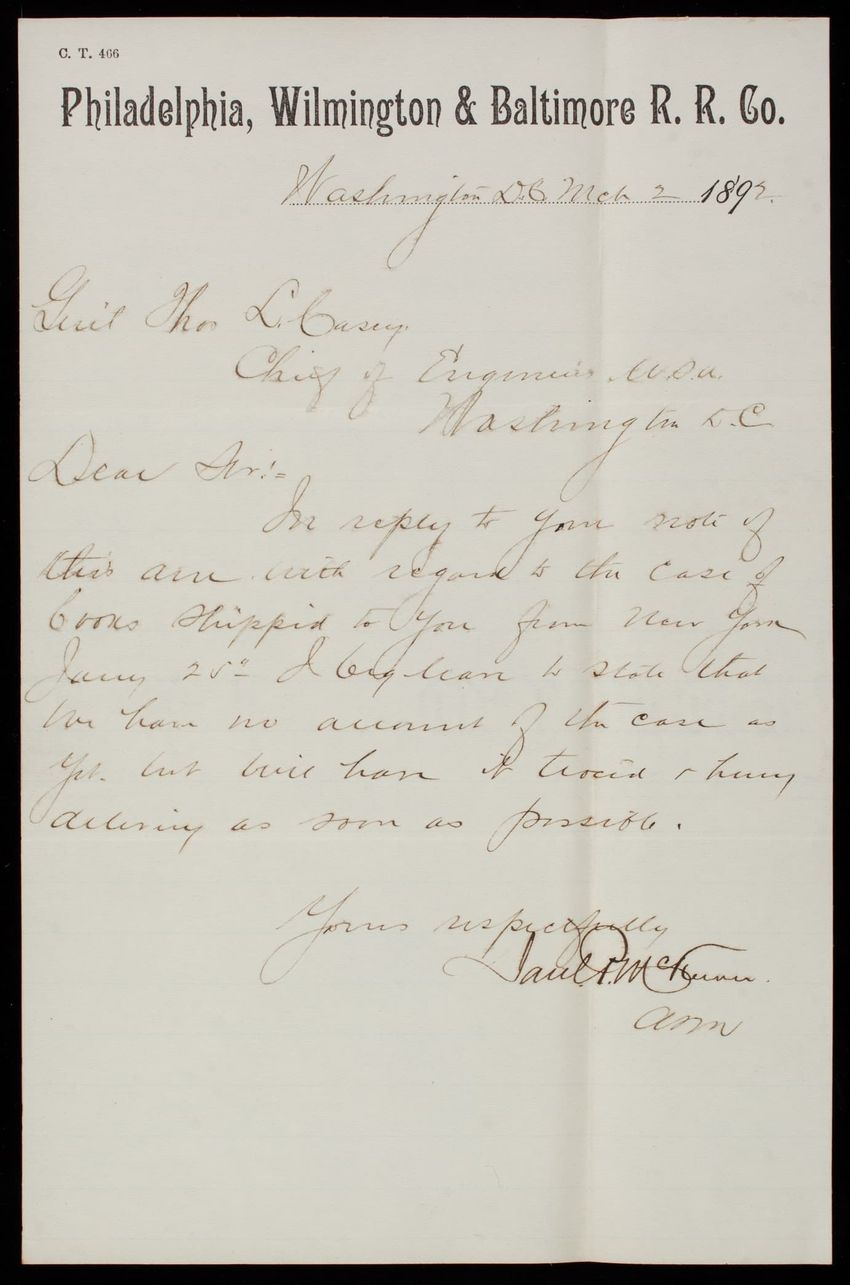 C. T. 466
Philadelphia, Wilmington & Baltimore R. R. Co.
Washington D.C. Mch 2 1892.
Gen'l Thos L. Casey
Chief of Engineers U.S.A.
Washington D.C.
Dear Sir:-
In reply to your note of
this with regard to the case of
books shipped to you from New York
Jany 25" I beg leave to state that
we have no account of the case as
yet. but will have it traced & hurry
delivery as soon as possible.
Yours respectfully